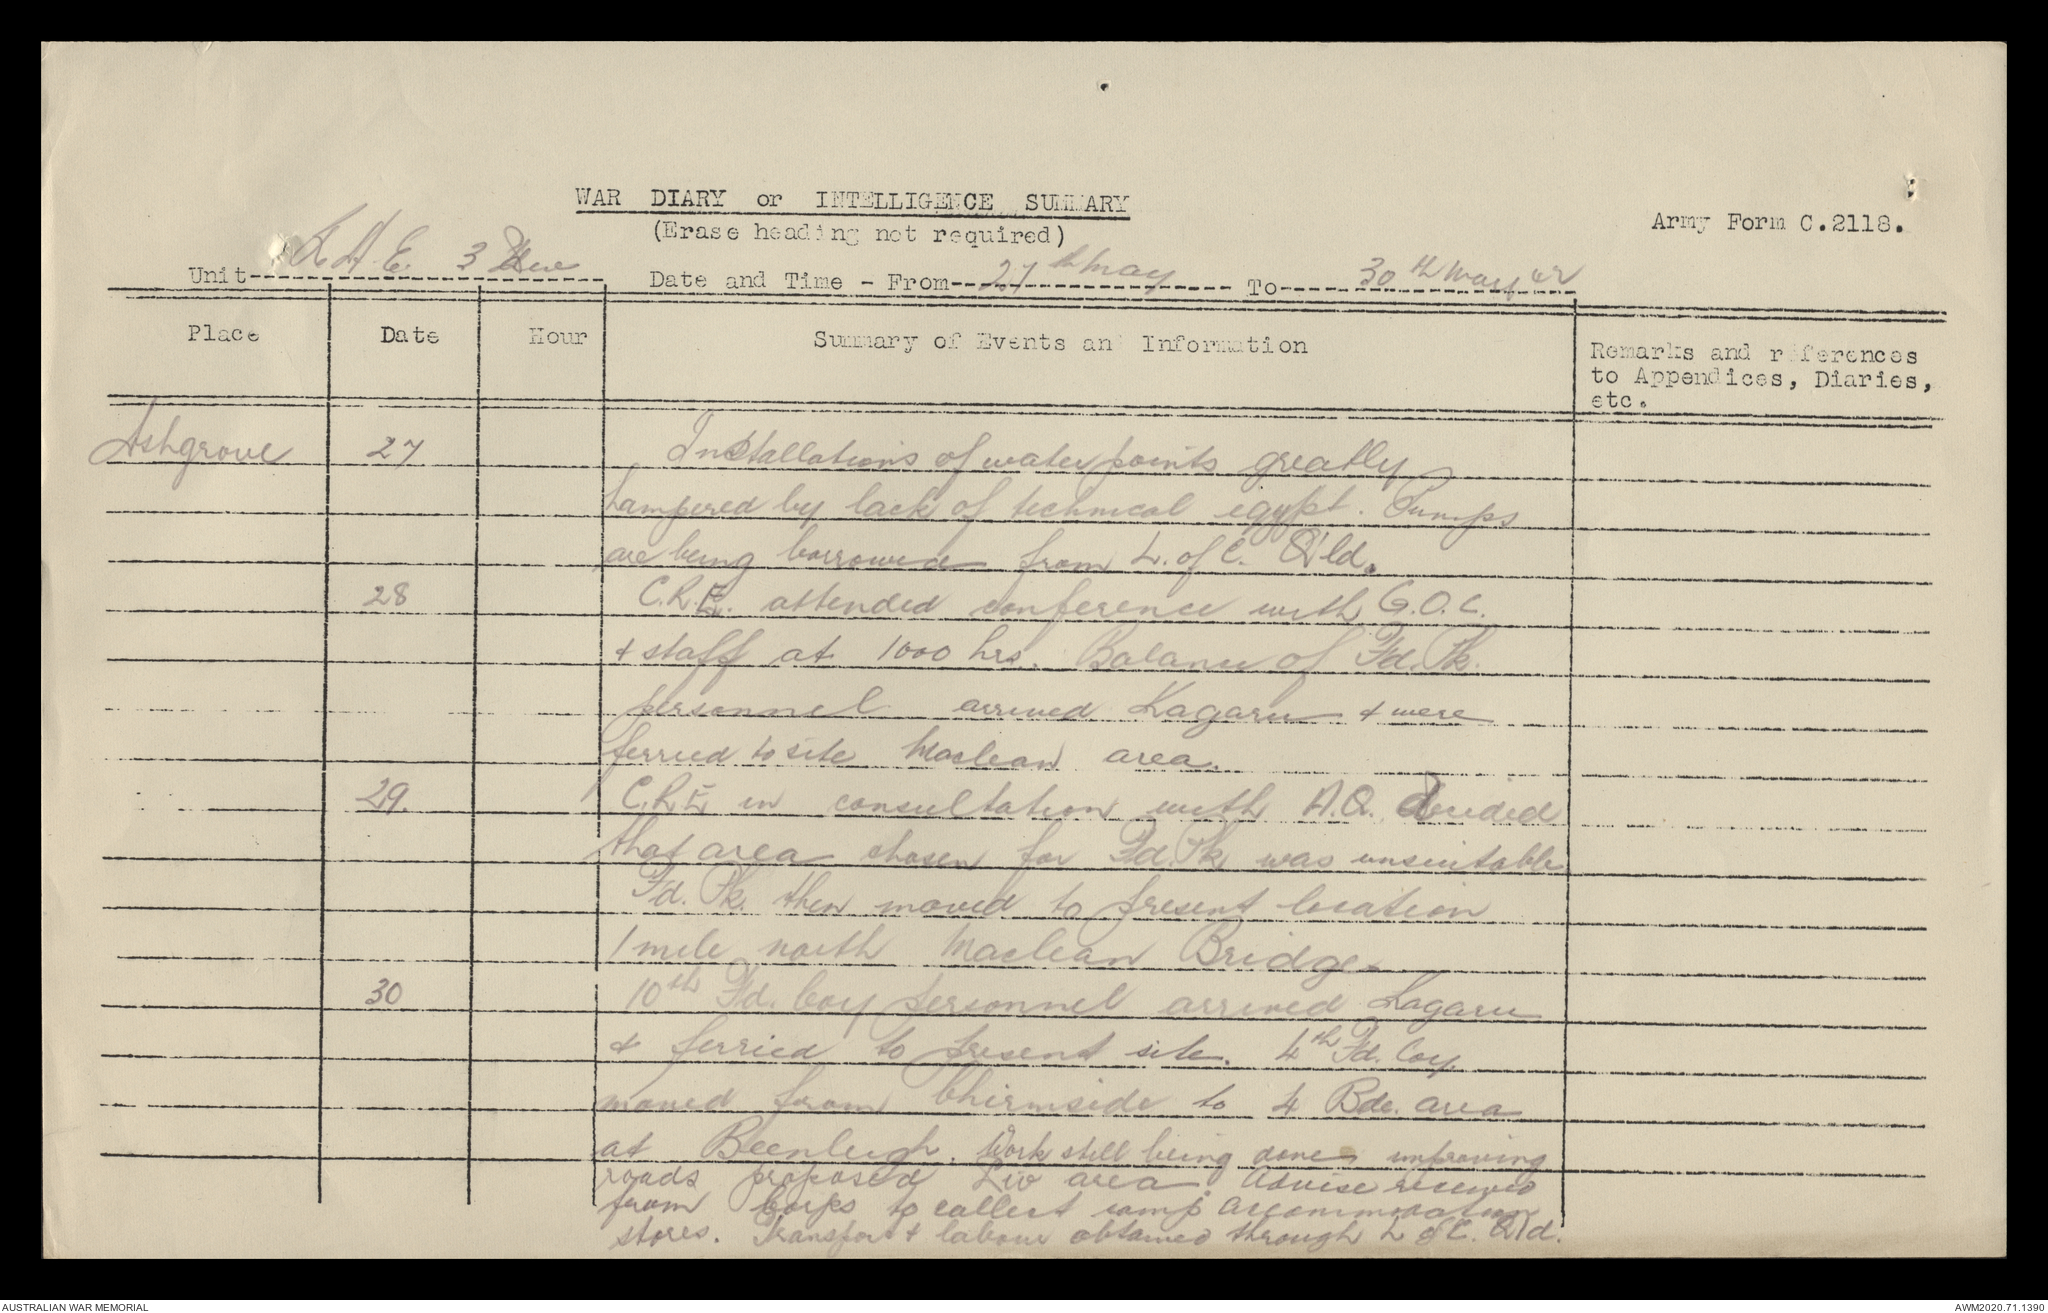 WAR DIARY or INTELLIGENCE SUMMARY
(Erase heading not required)
Army Form C.2118.
Unit R.A.E. 3 Div
Date and Time - From 27th May To 30th May 42
Place Date Hour Summary of Events and Information Remarks and references to Appendices, Diaries, etc.
Ashgrove 27 Installations of water points greatly
hampered by lack of technical eqypt. Pumps
are being borrowed from L. of C. Q'ld.
28 C.R.E. attended conference with G.O.C.
& staff at 1000 hrs. Balance of Fd. Pk.
personnel arrived Kagaru & were
ferried to site Maclean area.
29. C.R.E in consultation with A.Q. decided
that area chosen for Fd. Pk was unsuitable
Fd. Pk. then moved to present location
1 mile north Maclean Bridge.
30 10th Fd. Coy personnel arrived Kagaru
& ferried to present site. 4th Fd. Coy.
moved from Chirmside to 4 Bde. area
at Beenleigh. Work still being done improving
roads proposed Div area. Advise received
from Corps to collect camp accommodation
stores. Transport & labour obtained through L of C. Qld.
AUSTRALIAN WAR MEMORIAL
AWM2020.71.1390